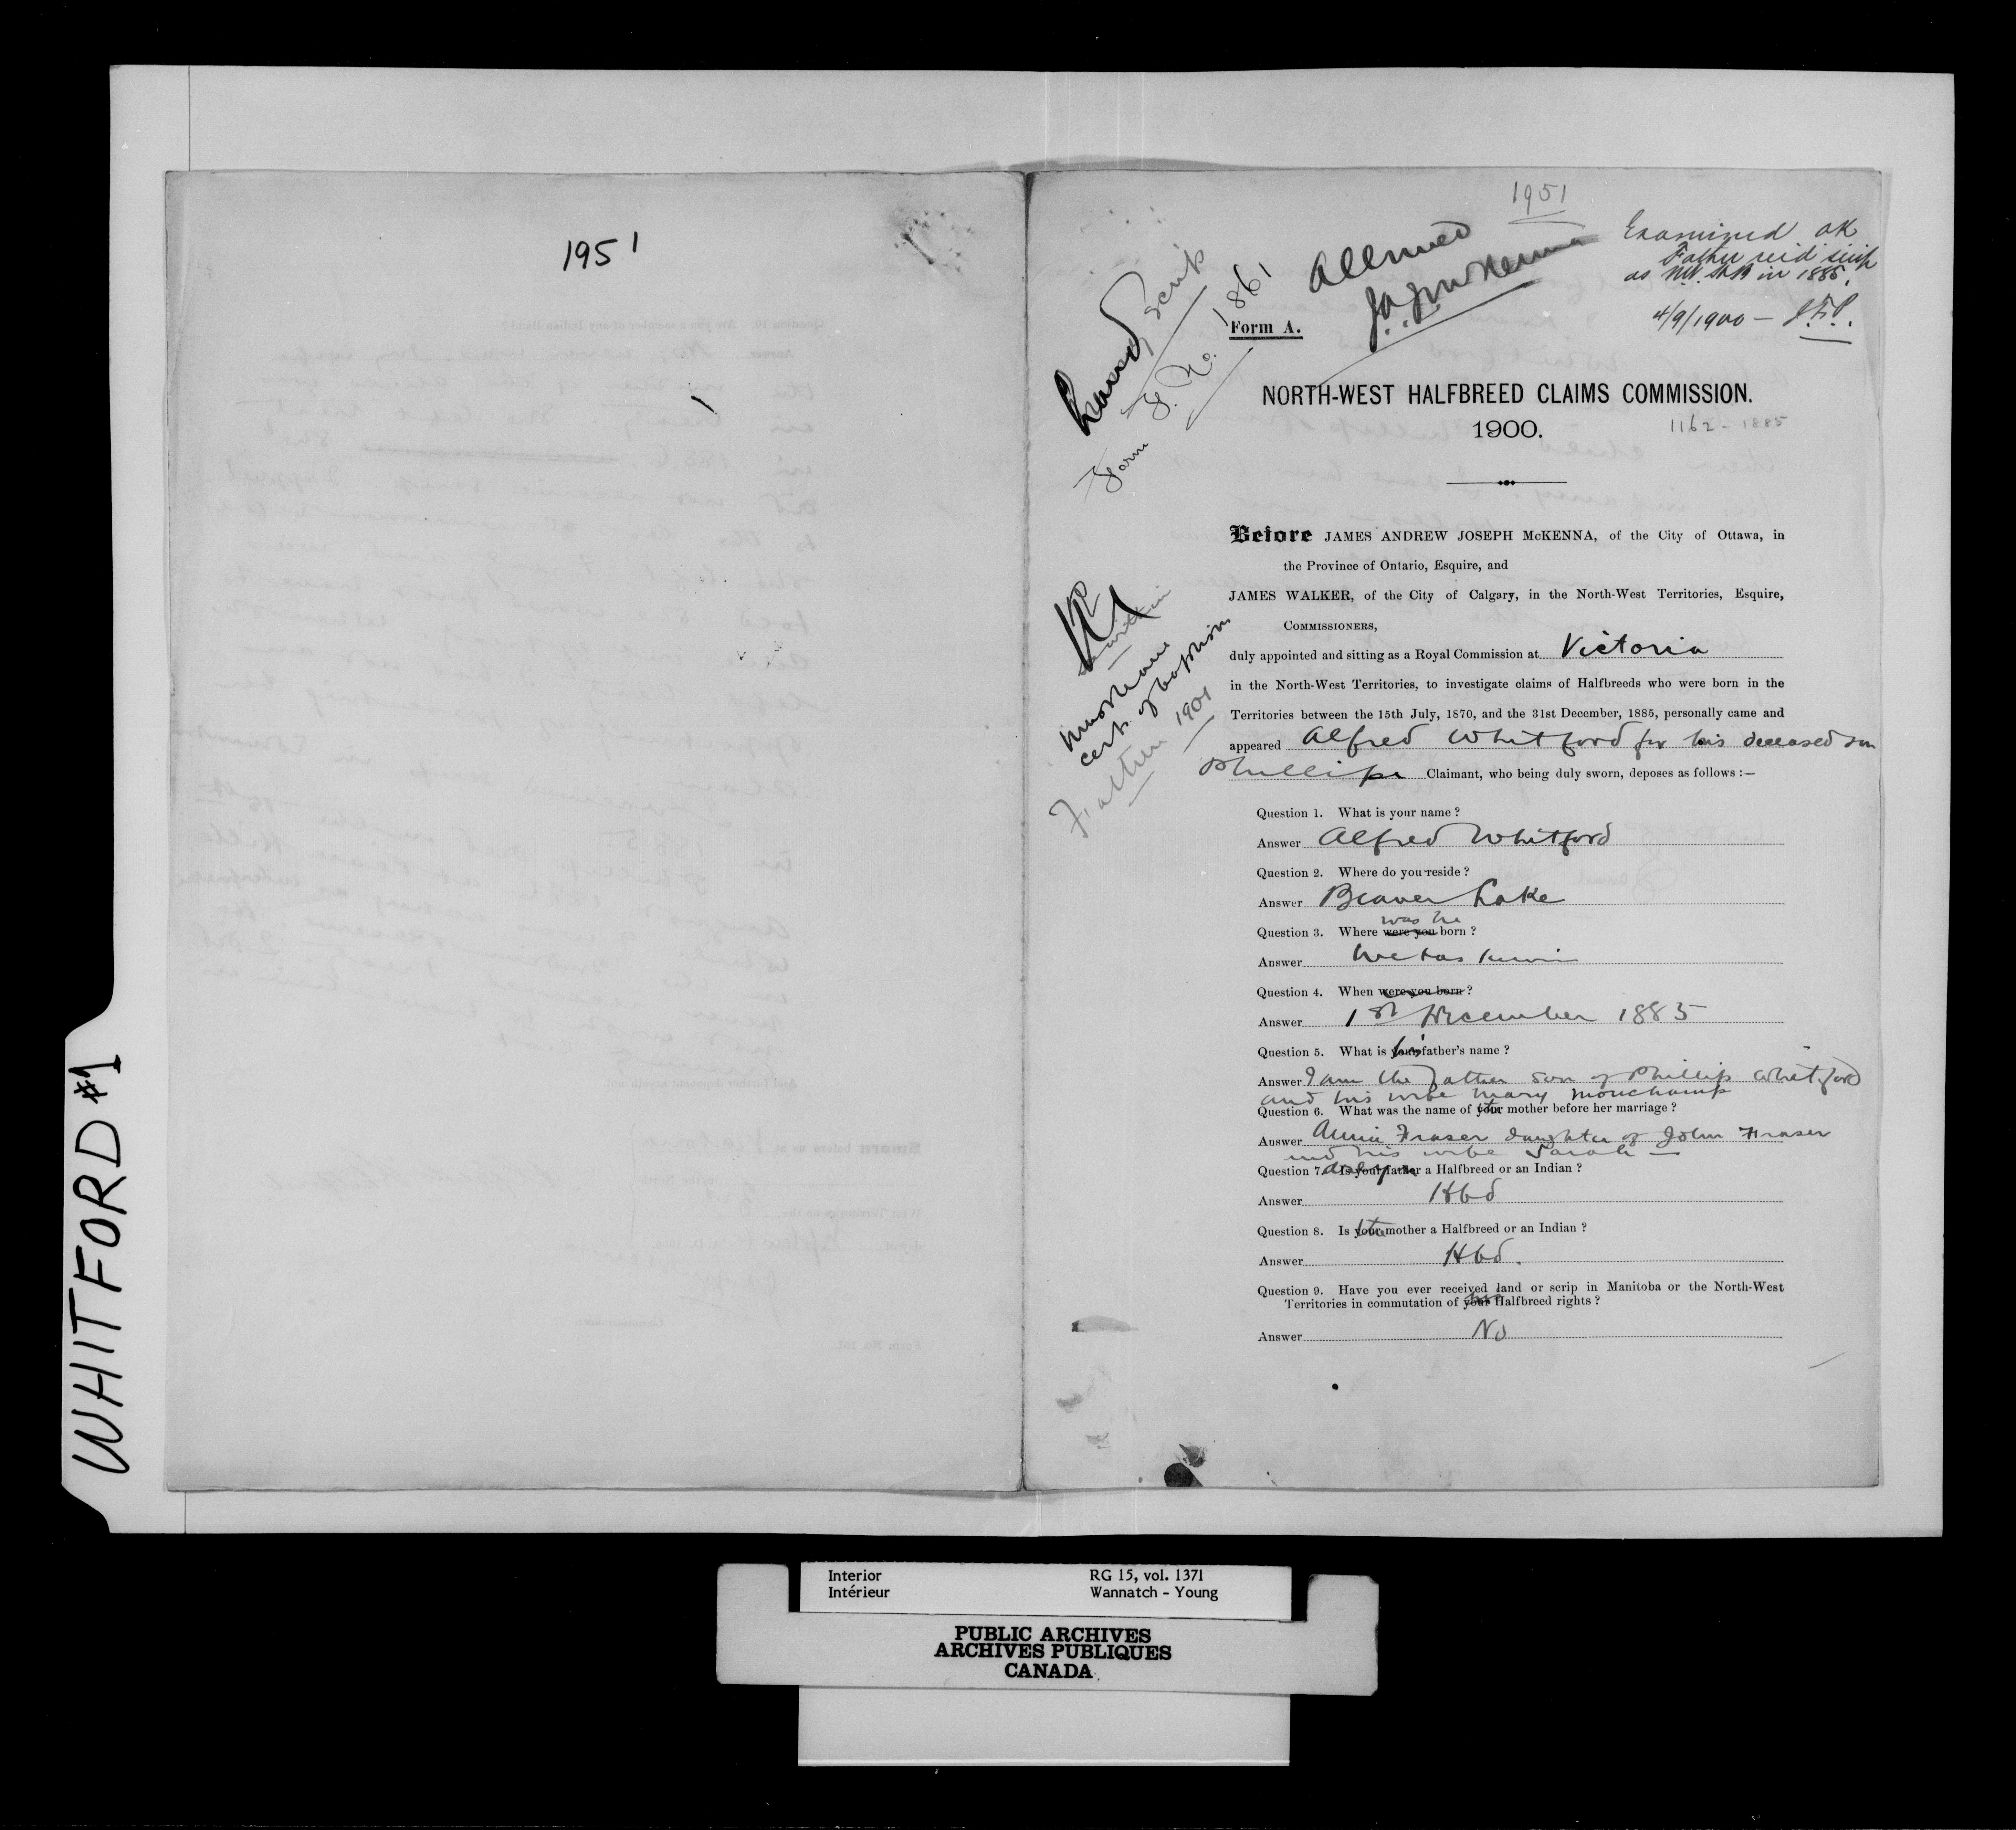 WHITFORD #1
1951
1951
Allowed
Examined OK
Father rec'd scrip
as N.W. H.B in 1885.
4/9/1900 — J.F.P.
Land Scrip
Form F. No. 1861
Form A.
NORTH-WEST HALFBREED CLAIMS COMMISSION.
1900.
1162 - 1885
Before JAMES ANDREW JOSEPH McKENNA, of the City of Ottawa, in
the Province of Ontario, Esquire, and
JAMES WALKER, of the City of Calgary, in the North-West Territories, Esquire,
COMMISSIONERS,
duly appointed and sitting as a Royal Commission at Victoria
in the North-West Territories, to investigate claims of Halfbreeds who were born in the
Territories between the 15th July, 1870, and the 31st December, 1885, personally came and
appeared Alfred Whitford for his deceased son
Phillip Claimant, who being duly sworn, deposes as follows :—
must have
cert. of baptism
Father 1901
Question 1. What is your name ?
Answer Alfred Whitford
Question 2. Where do you reside ?
Answer Beaver Lake
was he
Question 3. Where were you born ?
Answer Wetaskiwin
Question 4. When were you born ?
Answer 1st December 1885
Question 5. What is his father's name ?
Answer I am the father son of Phillip Whitford
and his wife Mary Monchamp
Question 6. What was the name of his mother before her marriage ?
Answer Annie Fraser daughter of John Fraser
and his wife Sarah —
Question 7. Is your father a Halfbreed or an Indian ?
Answer Hbd
Question 8. Is his mother a Halfbreed or an Indian ?
Answer Hbd.
Question 9. Have you ever received land or scrip in Manitoba or the North-West
Territories in commutation of his Halfbreed rights ?
Answer No
Interior RG 15, vol. 1371
Intérieur Wannatch - Young
PUBLIC ARCHIVES
ARCHIVES PUBLIQUES
CANADA